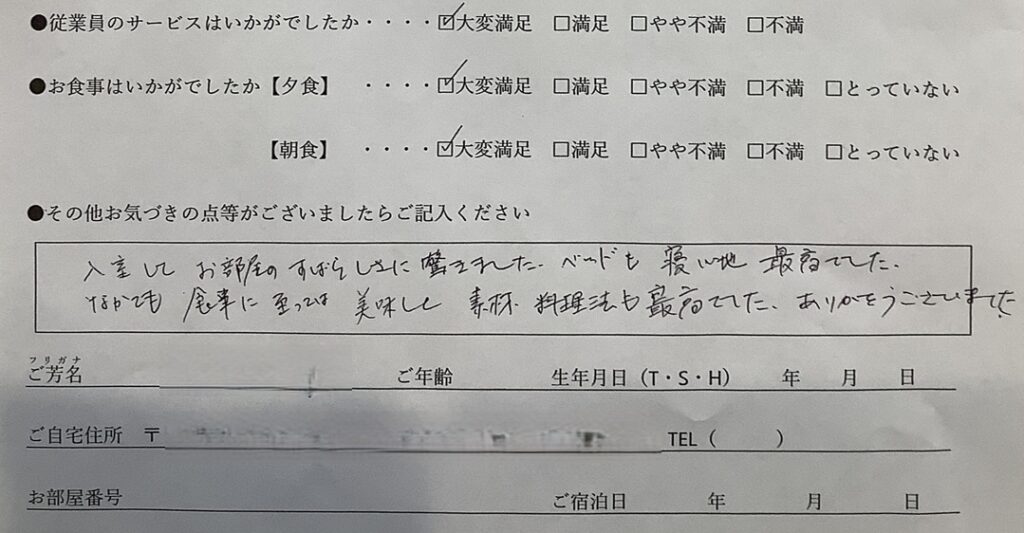 ●従業員のサービスはいかがでしたか・・・・☑大変満足 □満足 □やや不満 □不満
●お食事はいかがでしたか【夕食】 ・・・・☑大変満足 □満足 □やや不満 □不満 □とっていない
【朝食】 ・・・・☑大変満足 □満足 □やや不満 □不満 □とっていない
●その他お気づきの点等がございましたらご記入ください
入室して お部屋のすばらしさに驚きました。ベッドも 寝心地 最高でした。
なかでも 食事に至っては 美味しく 素材 料理法も最高でした。ありがとうございました
フリガナ
ご芳名 ご年齢 生年月日（T・S・H） 年 月 日
ご自宅住所 〒 TEL（ ）
お部屋番号 ご宿泊日 年 月 日